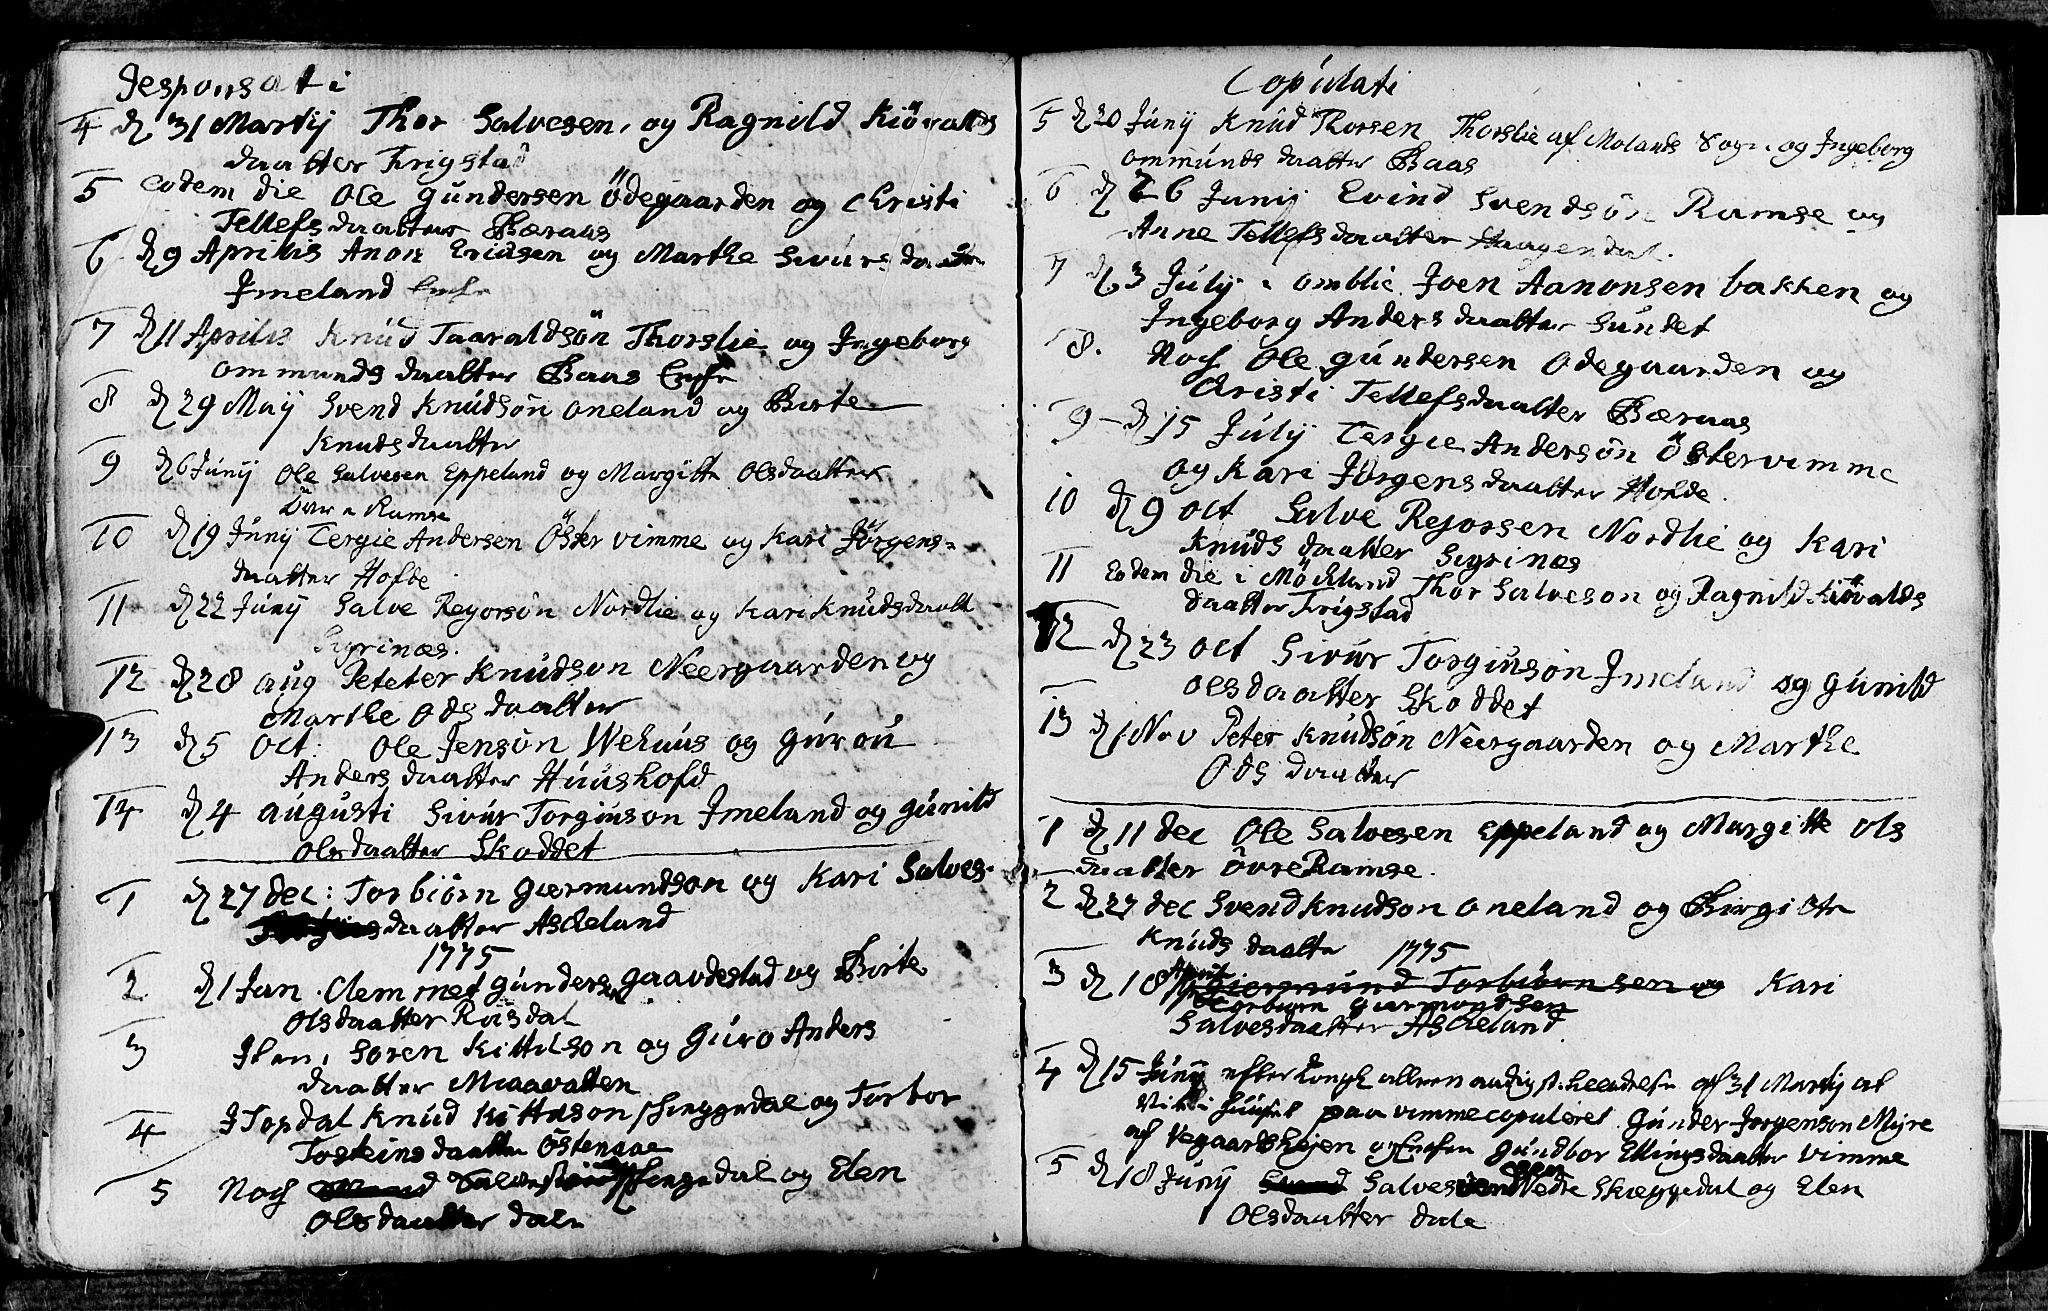 Desponsati
4 d 31 Martij Thor Salvesen, og Ragnild Kiövalds
daatter Frigstad
5 eodem die Ole Gundersen Ödegaarden og Christi
Tellefsdaatter Bæraas
6 d 9 Aprilis Anon Ericksen og Marthe Sivurs daatter
Imeland Enke
7 d 11 Aprilis Knud Taaraldsön Thorslie og Ingeborg
ommunds daatter Baas Enke
8 d 29 Maij Svend Knudsön oneland og Birte
Knudsdaatter
9 d 6 Junij Ole Salvesen Eppeland og Margitte Olsdaatter
Övre Ramse
10 d 19 Junij Tergie Andersen Östervimme og Kari Jörgens-
daatter Hofde
11 d 22 Junij Salve Rejorsön Nordlie og Kari Knudsdaatt
Sigrinæs.
12 d 28 aug Peteter Knudson Neergaarden og
Marthe Ods daatter
13 d 5 Oct: Ole Jensön Wehuus og Gurou
Anders daatter Huushofd
14 d 4 augusti Sivur Torginson Imeland og Gunild
Olsdaatter Skoddet
1 d 27 dec: Torbiörn Giermundson og Kari Salves-
daatter Askeland
1775
2 d 1 Jan. Clemmet Gunders gaardestad og Birte
Olsdaatter Riisdal
3 Item, Soren Kittilson og Guro Anders
daatter Miaavatten
4 I Topdal Knud Kittilson Skieggedal og Torbor
Tosteins daatter Östenaae
5 Noch og Elen
Olsdaatter dale
Copulati
5 d 20 Junij Knud Thorsen Thorslie af Molands Sogn og Ingeborg
ommunds daatter Baas
6 d 26 Junij Evind Svendsön Ramse og
Anne Tellefsdaatter Haugendal.
7 d 3 July i omblie Joen Aanonsen bakken og
Ingeborg Anders daatter Sundet
8. Noch Ole Gundersen Odegaarden og
Christi Tellefsdaatter Bæraas
9 d 15 July Tergie Andersön Östervimme
og Kari Jörgensdaatter Hofde.
10 d 9 Oct Salve Rejorsen Nordlie og Kari
Knuds daatter Sigrinæs
11 Eodem die i Möckland Thor Salveson og Ragnild Kiövalds
daatter Frigstad
12 d 23 Oct Sivur Torginsön Imeland og Gunild
Olsdaatter Skoddet
13 d 1 Nov Peter Knudsön Neergaarden og Marthe
Ods daatter
1 d 11 dec Ole Salvesen Eppeland og Margitte Ols
daatter Övre Ramse.
2 d 27 dec Svend Knudson oneland og Birgitte
Knuds daatter 1775
3 d 18 April Giermund Torbiörnsen og Kari
Torbiorn Giermondsen
Salvesdaatter Askeland
4 d 15 Junij efter Kongl allernaadigst af 31 Martij at
Vie i Huuset paa vimme copuleret Gunder Jorgenson Myre
af Vegaardsheien og Enken Gundbor Ellingsdaatter Vimme
5 d 18 Junij Salve Nedre Skieggedal og Elen
Olsdaatter dale